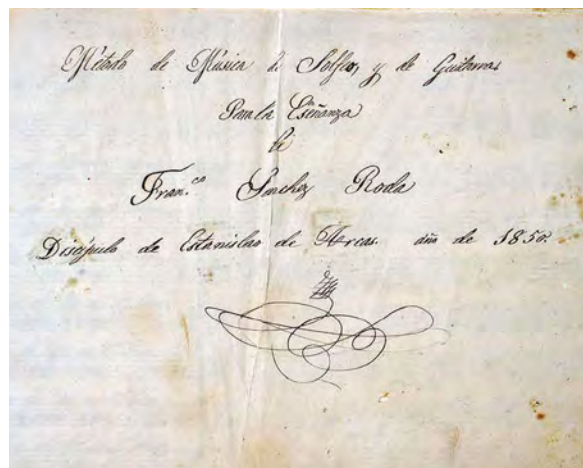 Método de Música de Solfeo, y de Guitarras
Para la Eseñanza
de
Fran.co Sanchez Roda
Discípulo de Estanislao de Arcas. año de 1850.